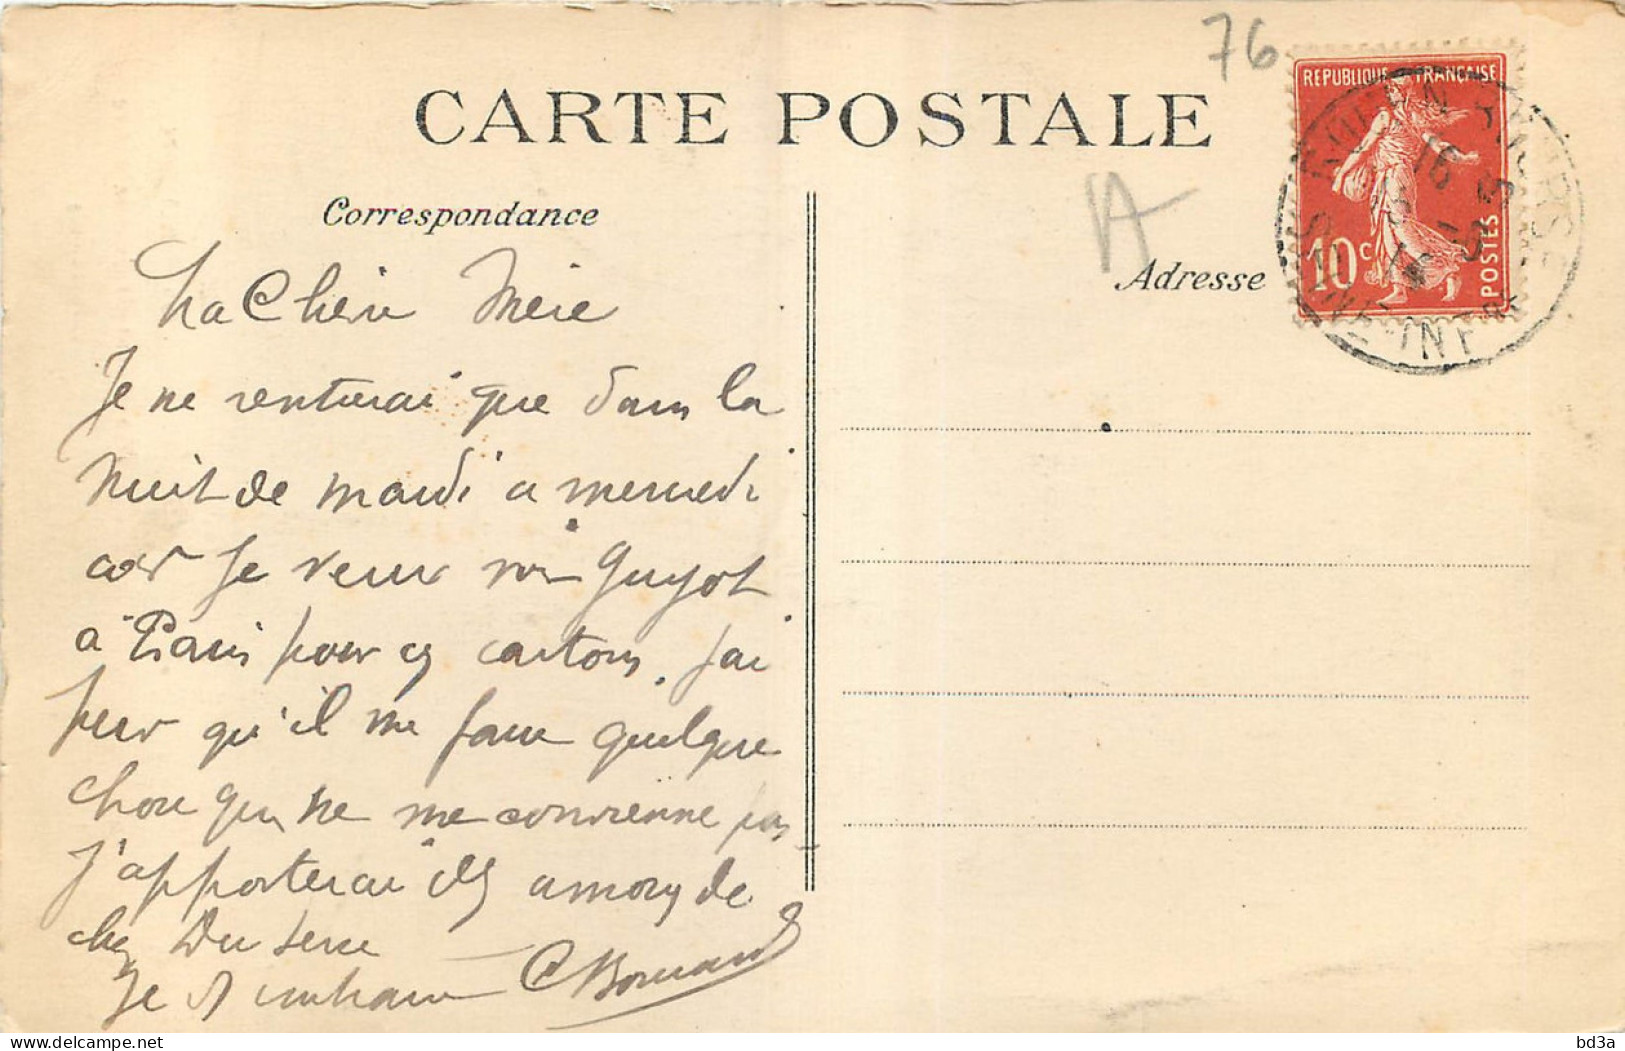 76
CARTE POSTALE
REPUBLIQUE FRANÇAISE
10c
POSTES
ROUEN
16
INFRE
A
Correspondance
Adresse
Ma Chère Mère
Je ne rentrerai que dans la
nuit de mardi a mercredi
car Je veux voir Guyot
à Paris pour cartons. J'ai
peur qu'il me fasse quelque
chose qui ne me convienne pas
J'apporterai de
chez Du
Je embrasse
delcampe.net
bd3a